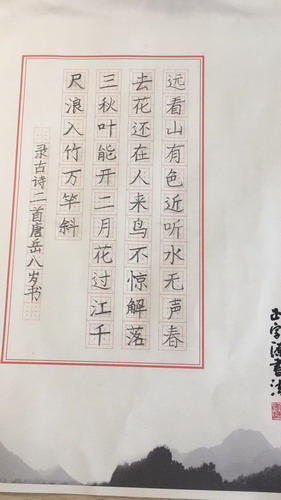 远看山有色近听水无声春
去花还在人来鸟不惊解落
三秋叶能开二月花过江千
尺浪入竹万竿斜
录古诗二首唐岳八岁书